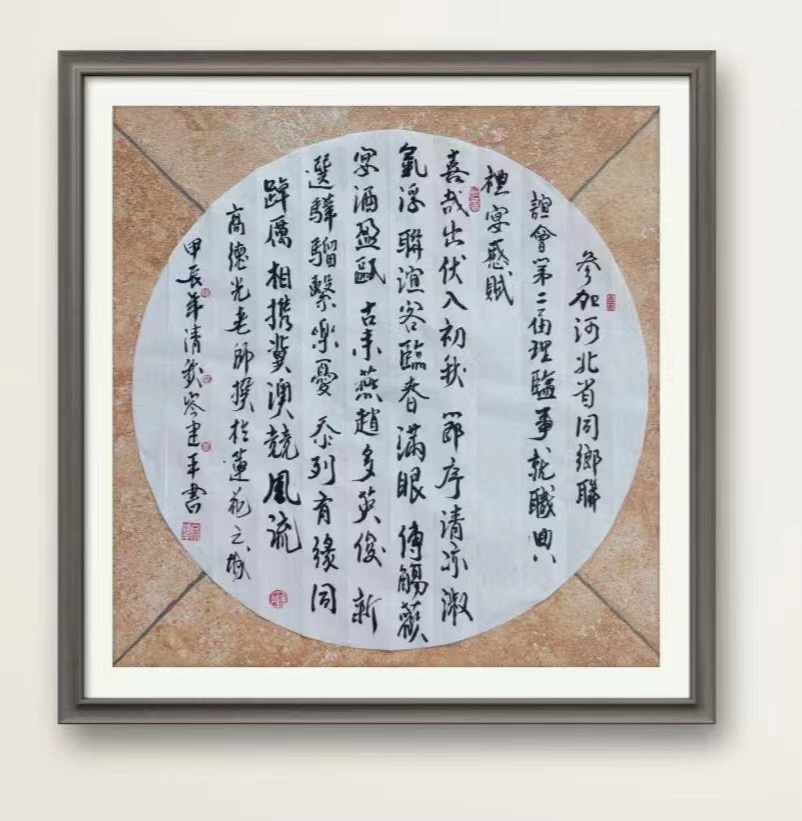 參加河北省同鄉聯
誼會第二屆理監事就職典
禮宴感賦
喜哉出伏入初秋 節序清涼淑
氣浮 聯誼客臨春滿眼 傳觴蘋
宴酒盈甌 古來燕趙多英俊 新
選驊騮繫樂憂 忝列有緣同
踔厲相攜冀澳競風流
高德光老師撰於蓮花之城
甲辰年清秋岑建平書